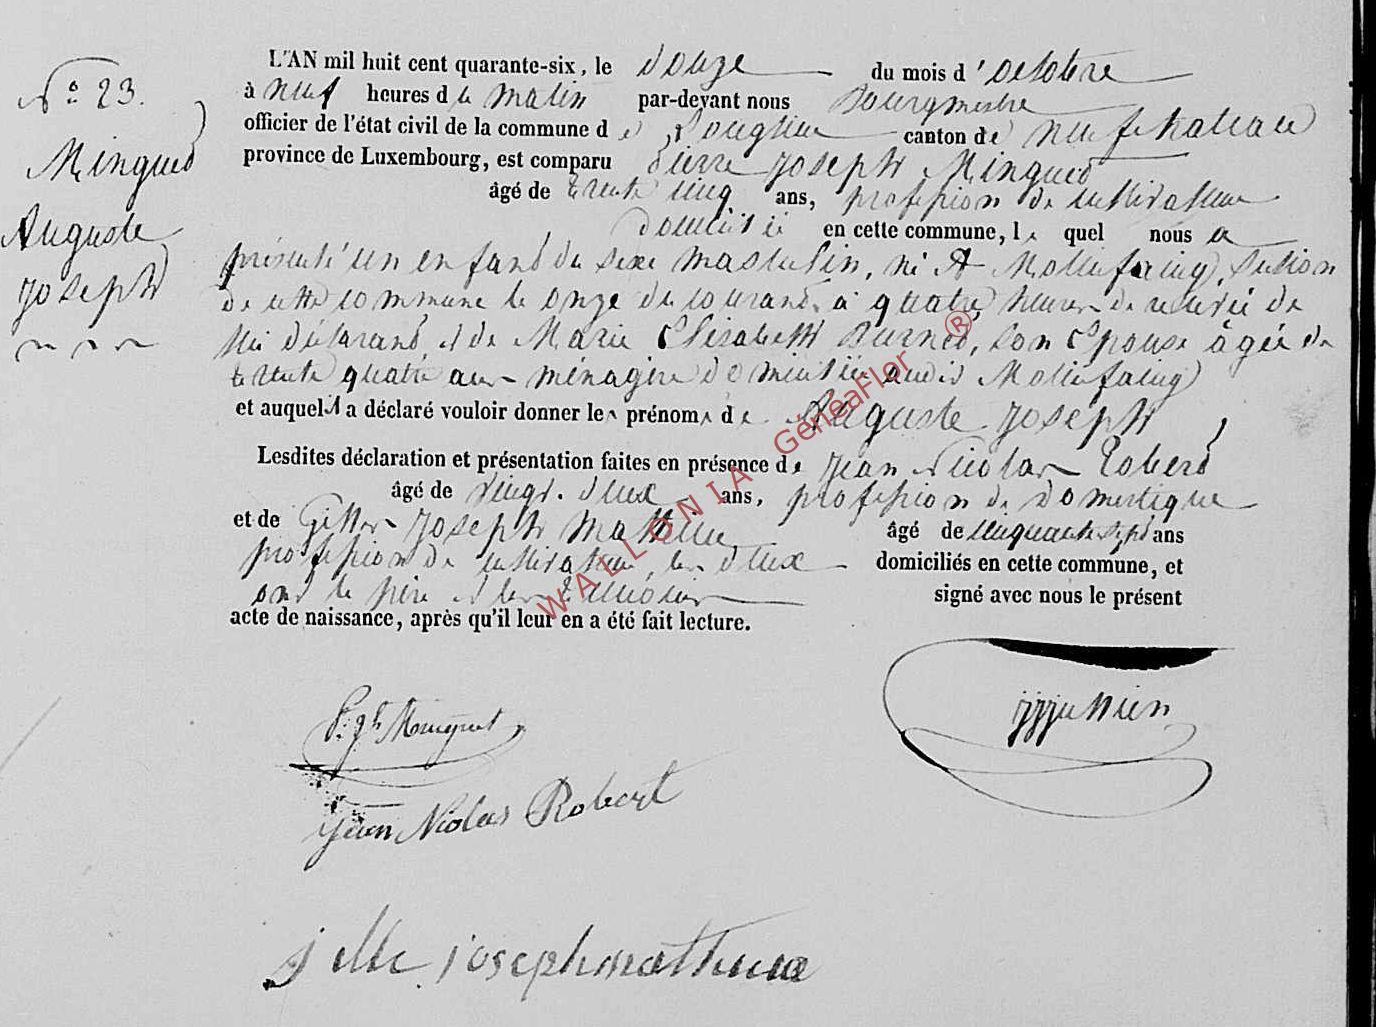 N° 23.
Minguet
Auguste
Joseph
L'AN mil huit cent quarante-six, le douze du mois d'octobre
à neuf heures du matin par-devant nous Bourgmestre
officier de l'état civil de la commune de Longlier canton de neufchateau
province de Luxembourg, est comparu Pierre Joseph Minguet
âgé de trente cinq ans, profession de cultivateur
domicilié en cette commune, lequel nous a
présenté un enfant du sexe masculin, né à Mollefaing, section
de cette commune le onze du courant à quatre heures de relevée de
lui déclarant et de Marie Elisabeth Burnet, son Epouse âgée de
trente quatre ans ménagère domiciliée audit Mollefaing
et auquel il a déclaré vouloir donner les prénoms de Auguste Joseph
Lesdites déclaration et présentation faites en présence de Jean Nicolas Robert
âgé de vingt deux ans, profession de domestique
et de Joseph Mathieu âgé de cinquante sept ans
profession de cultivateur, les deux domiciliés en cette commune, et
ont le père et les témoins signé avec nous le présent
acte de naissance, après qu'il leur en a été fait lecture.
P. Jh Minguet
Jean Nicolas Robert
joseph mathieu
WALLONIA GénéaFlor ®